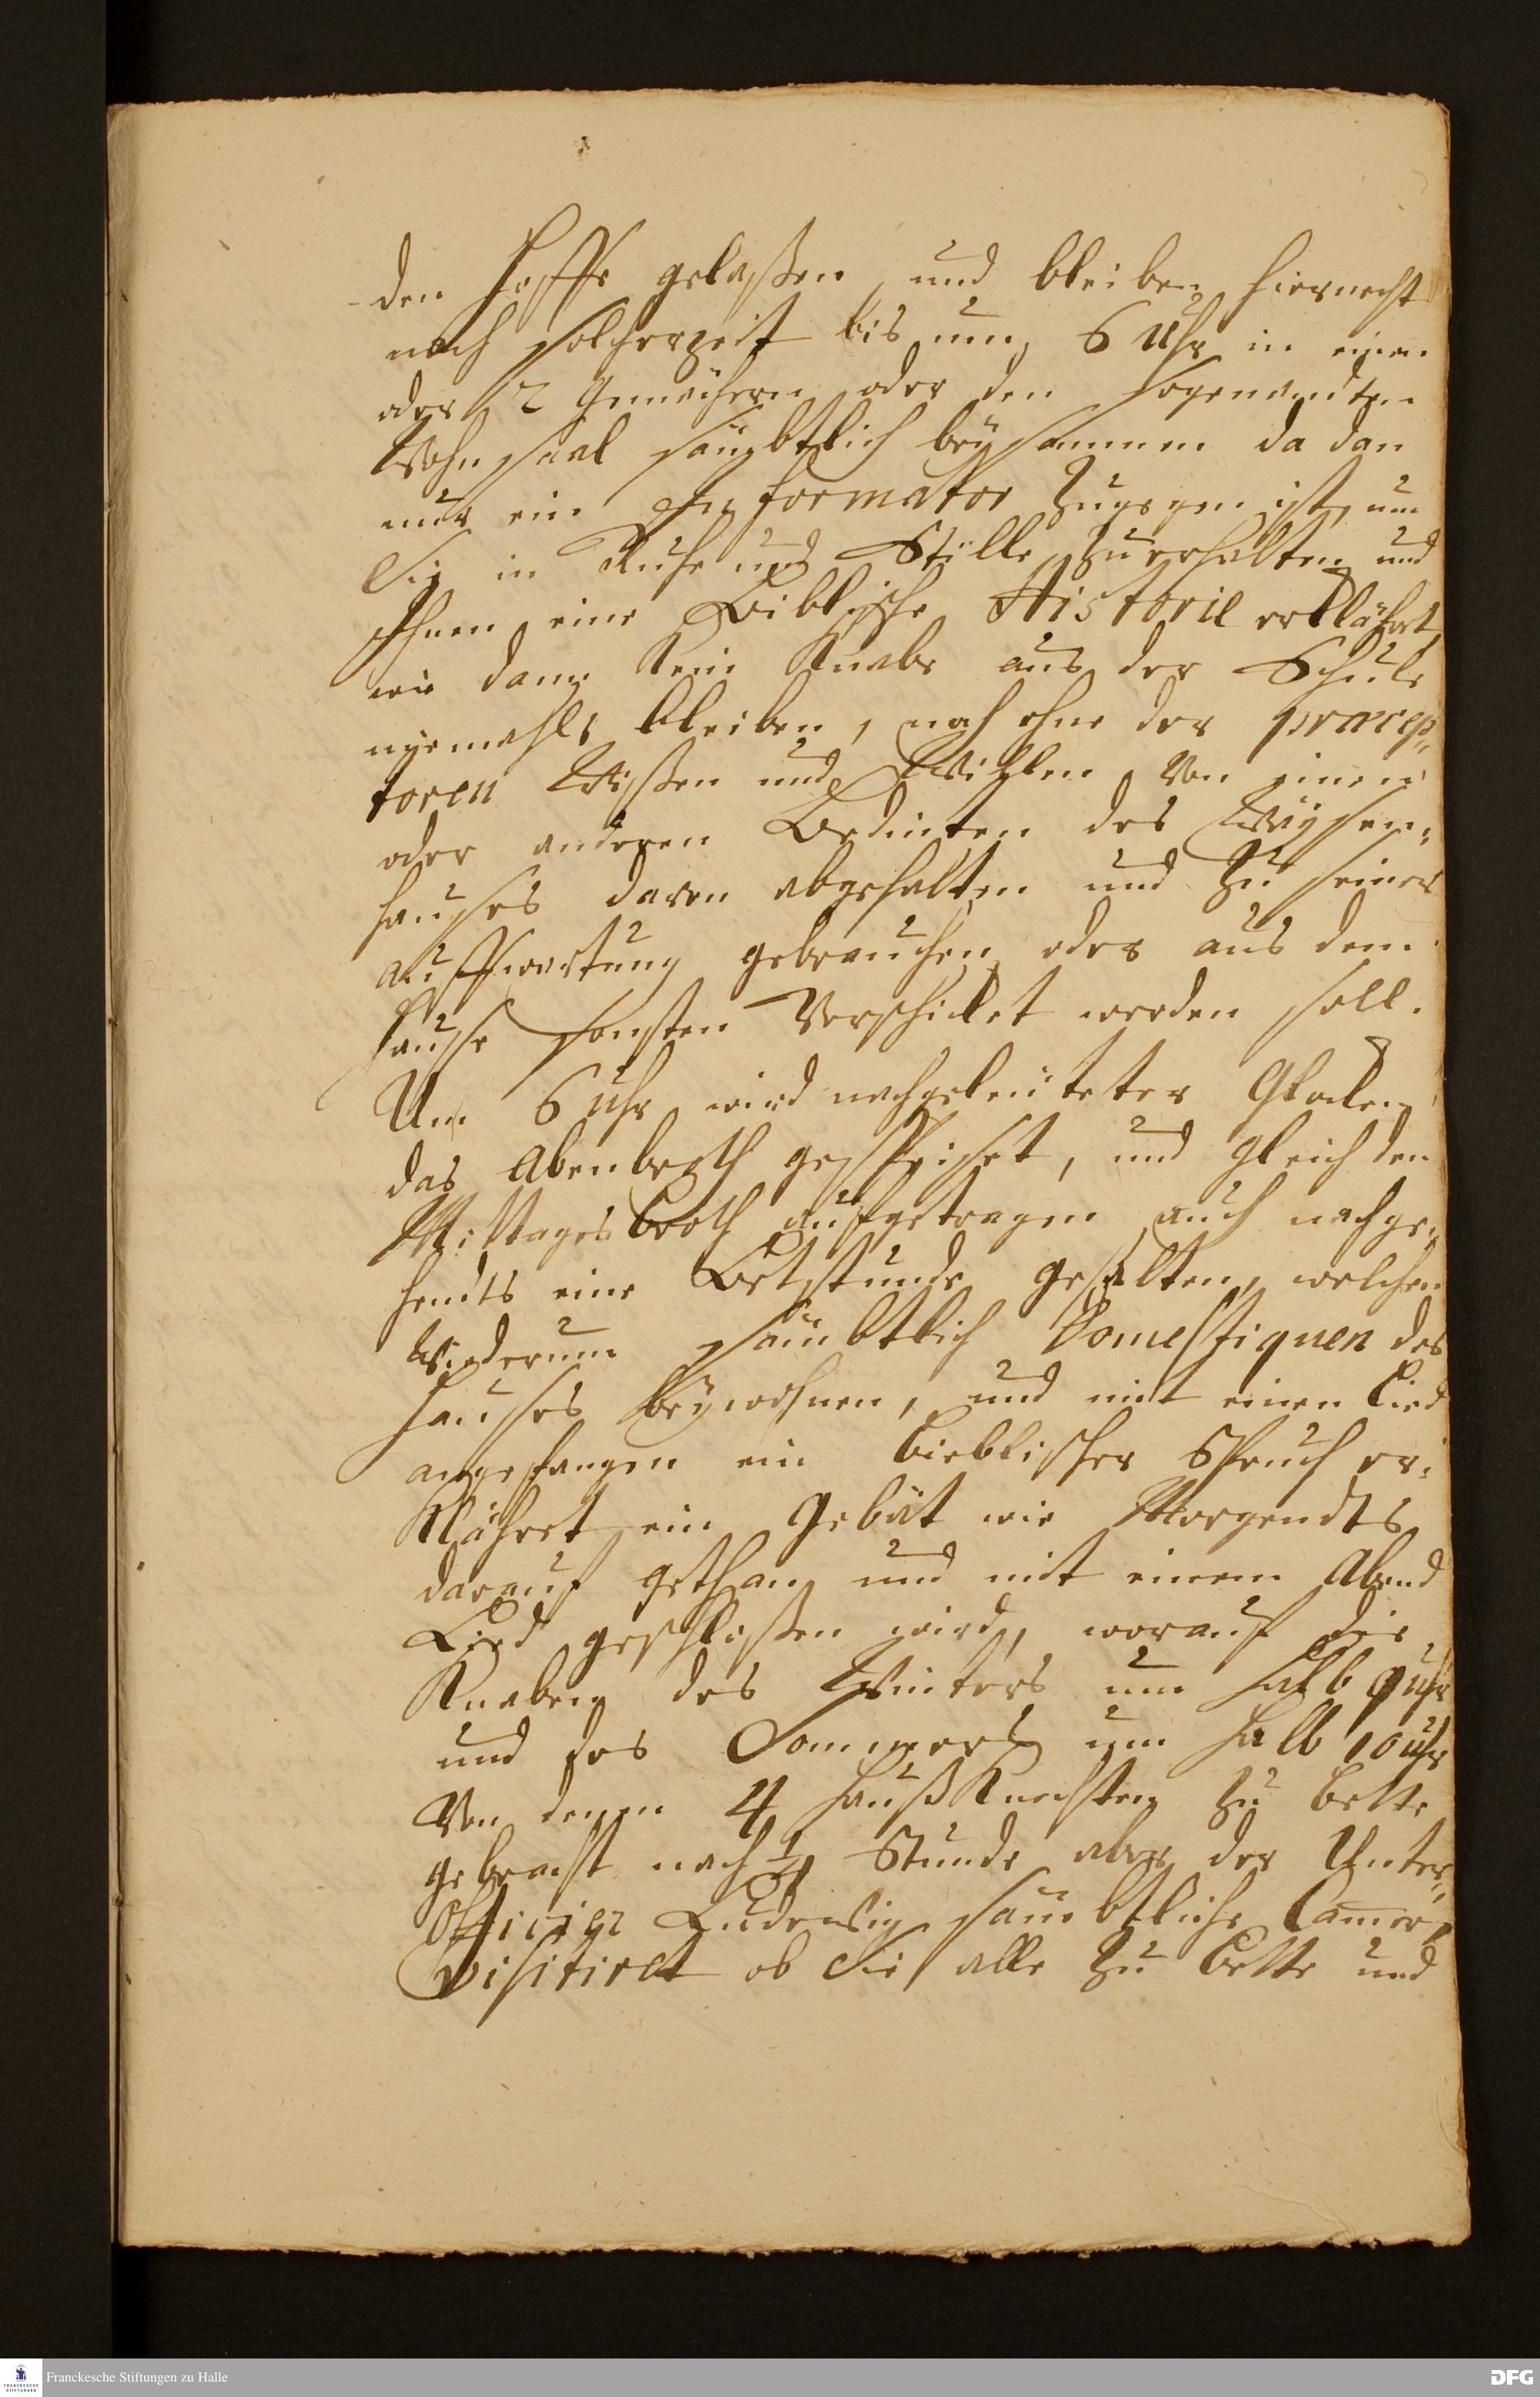 den Hoffe gelaßen, und bleiben hiernechst
nach solcherzeit bis um 6 Uhr in einen
oder 2 Gemächern oder den sogenandten
Wohnsaal sämbtlich beysammen da dan
nur ein Informator zugegen ist, um
Sie in Ruhe und Stille zu erhalten und
Ihnen eine Biblische Historie erklährt,
wie dann kein Knabe aus der Schule
nyemahls bleiben, noch ohne der præcep„
toren Wißen und Willen von einen
oder anderen Bedinten des Waysen„
hauses davon abgehalten und zu seiner
auffwartung gebrauchen oder aus dem
Hause sonsten verschicket werden soll.
Um 6 Uhr wird nachgeleuteter Glocken
das Abenbroth gespeiset, und gleich den
Mittages broth aufgetragen auch nachge„
hendts eine Betstunde gehalten, welchen
wiederum sämbtlich Domestiquen des
Hauses beywohnen, und mit einen Lied
angefangen ein Bieblischer Spruch er„
klähret ein Gebät wie Morgendts
darauf gethan und mit einem Abend
Lied geschloßen wird, worauf die
Knaben des Winters um halb 9 uhr
und des Sommers um halb 10 uhr
von denen 4 Haußknechten zu Bette
gebracht nach 1/4 Stunde aber der Unter„
Officier Ludewig sämbtliche Camer„
visitiret ob Sie alle zu Bette und
Franckesche Stiftungen zu Halle
DFG